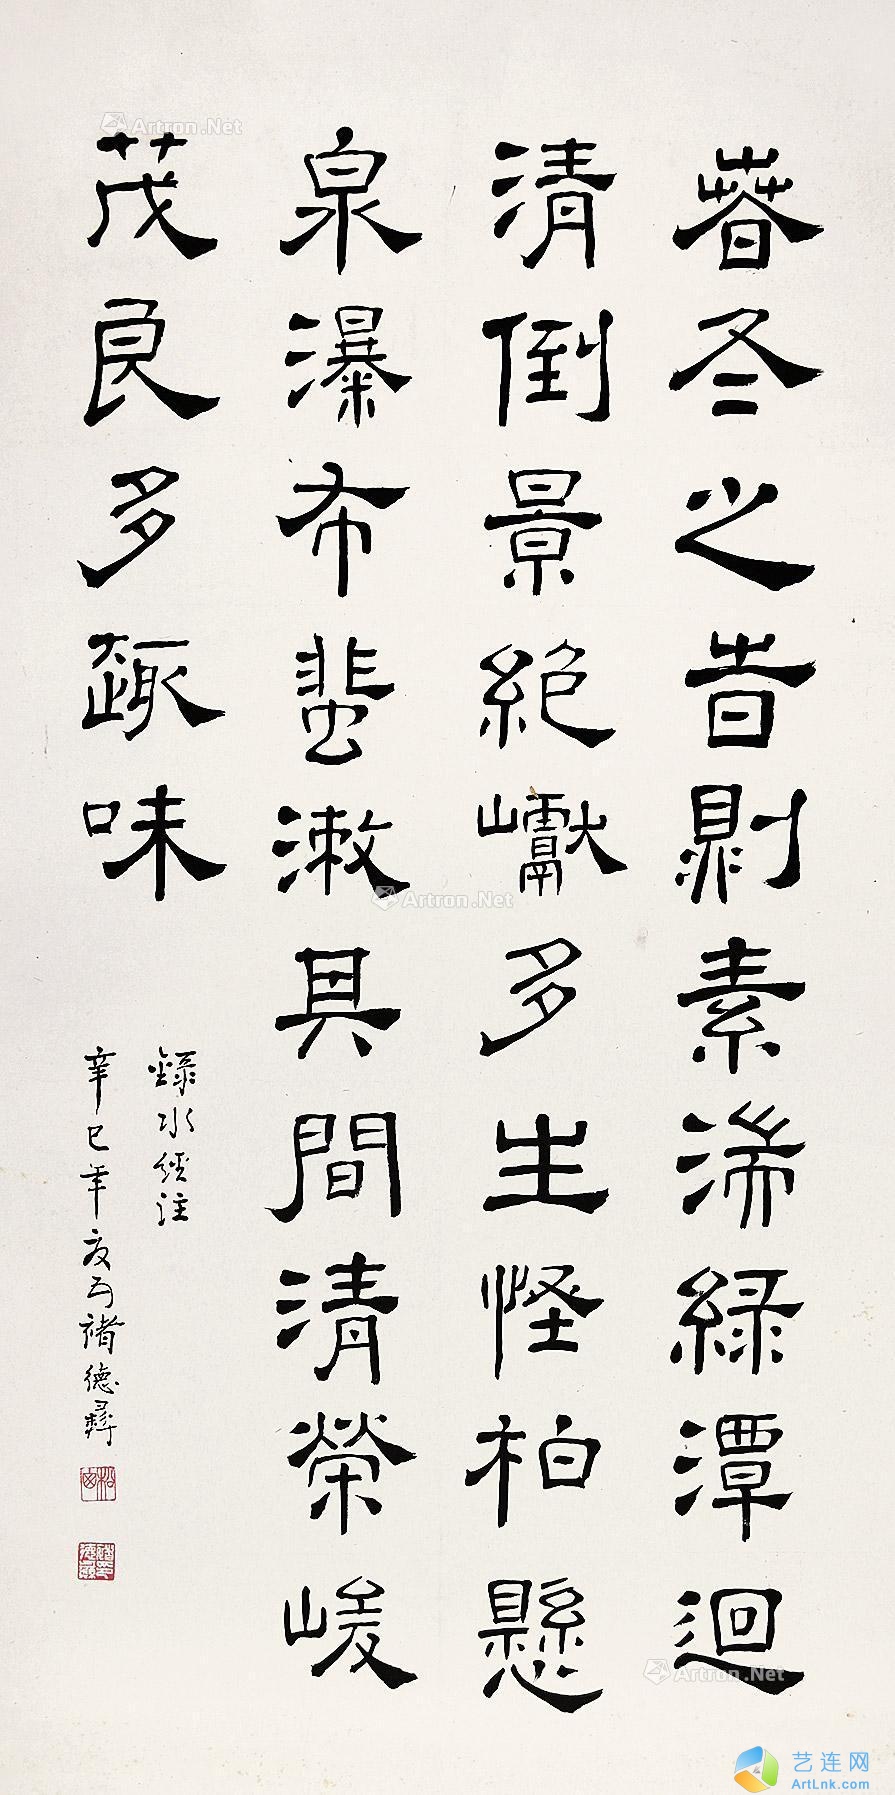 萅冬之時則素湍綠潭迴
清倒景絕巘多生怪柏懸
泉瀑布蜚漱其間清榮峻
茂良多趣味
錄水經注
辛巳年夏五褚德彝
Artron.Net
Artron.Net
Artron.Net
艺连网
ArtLnk.com